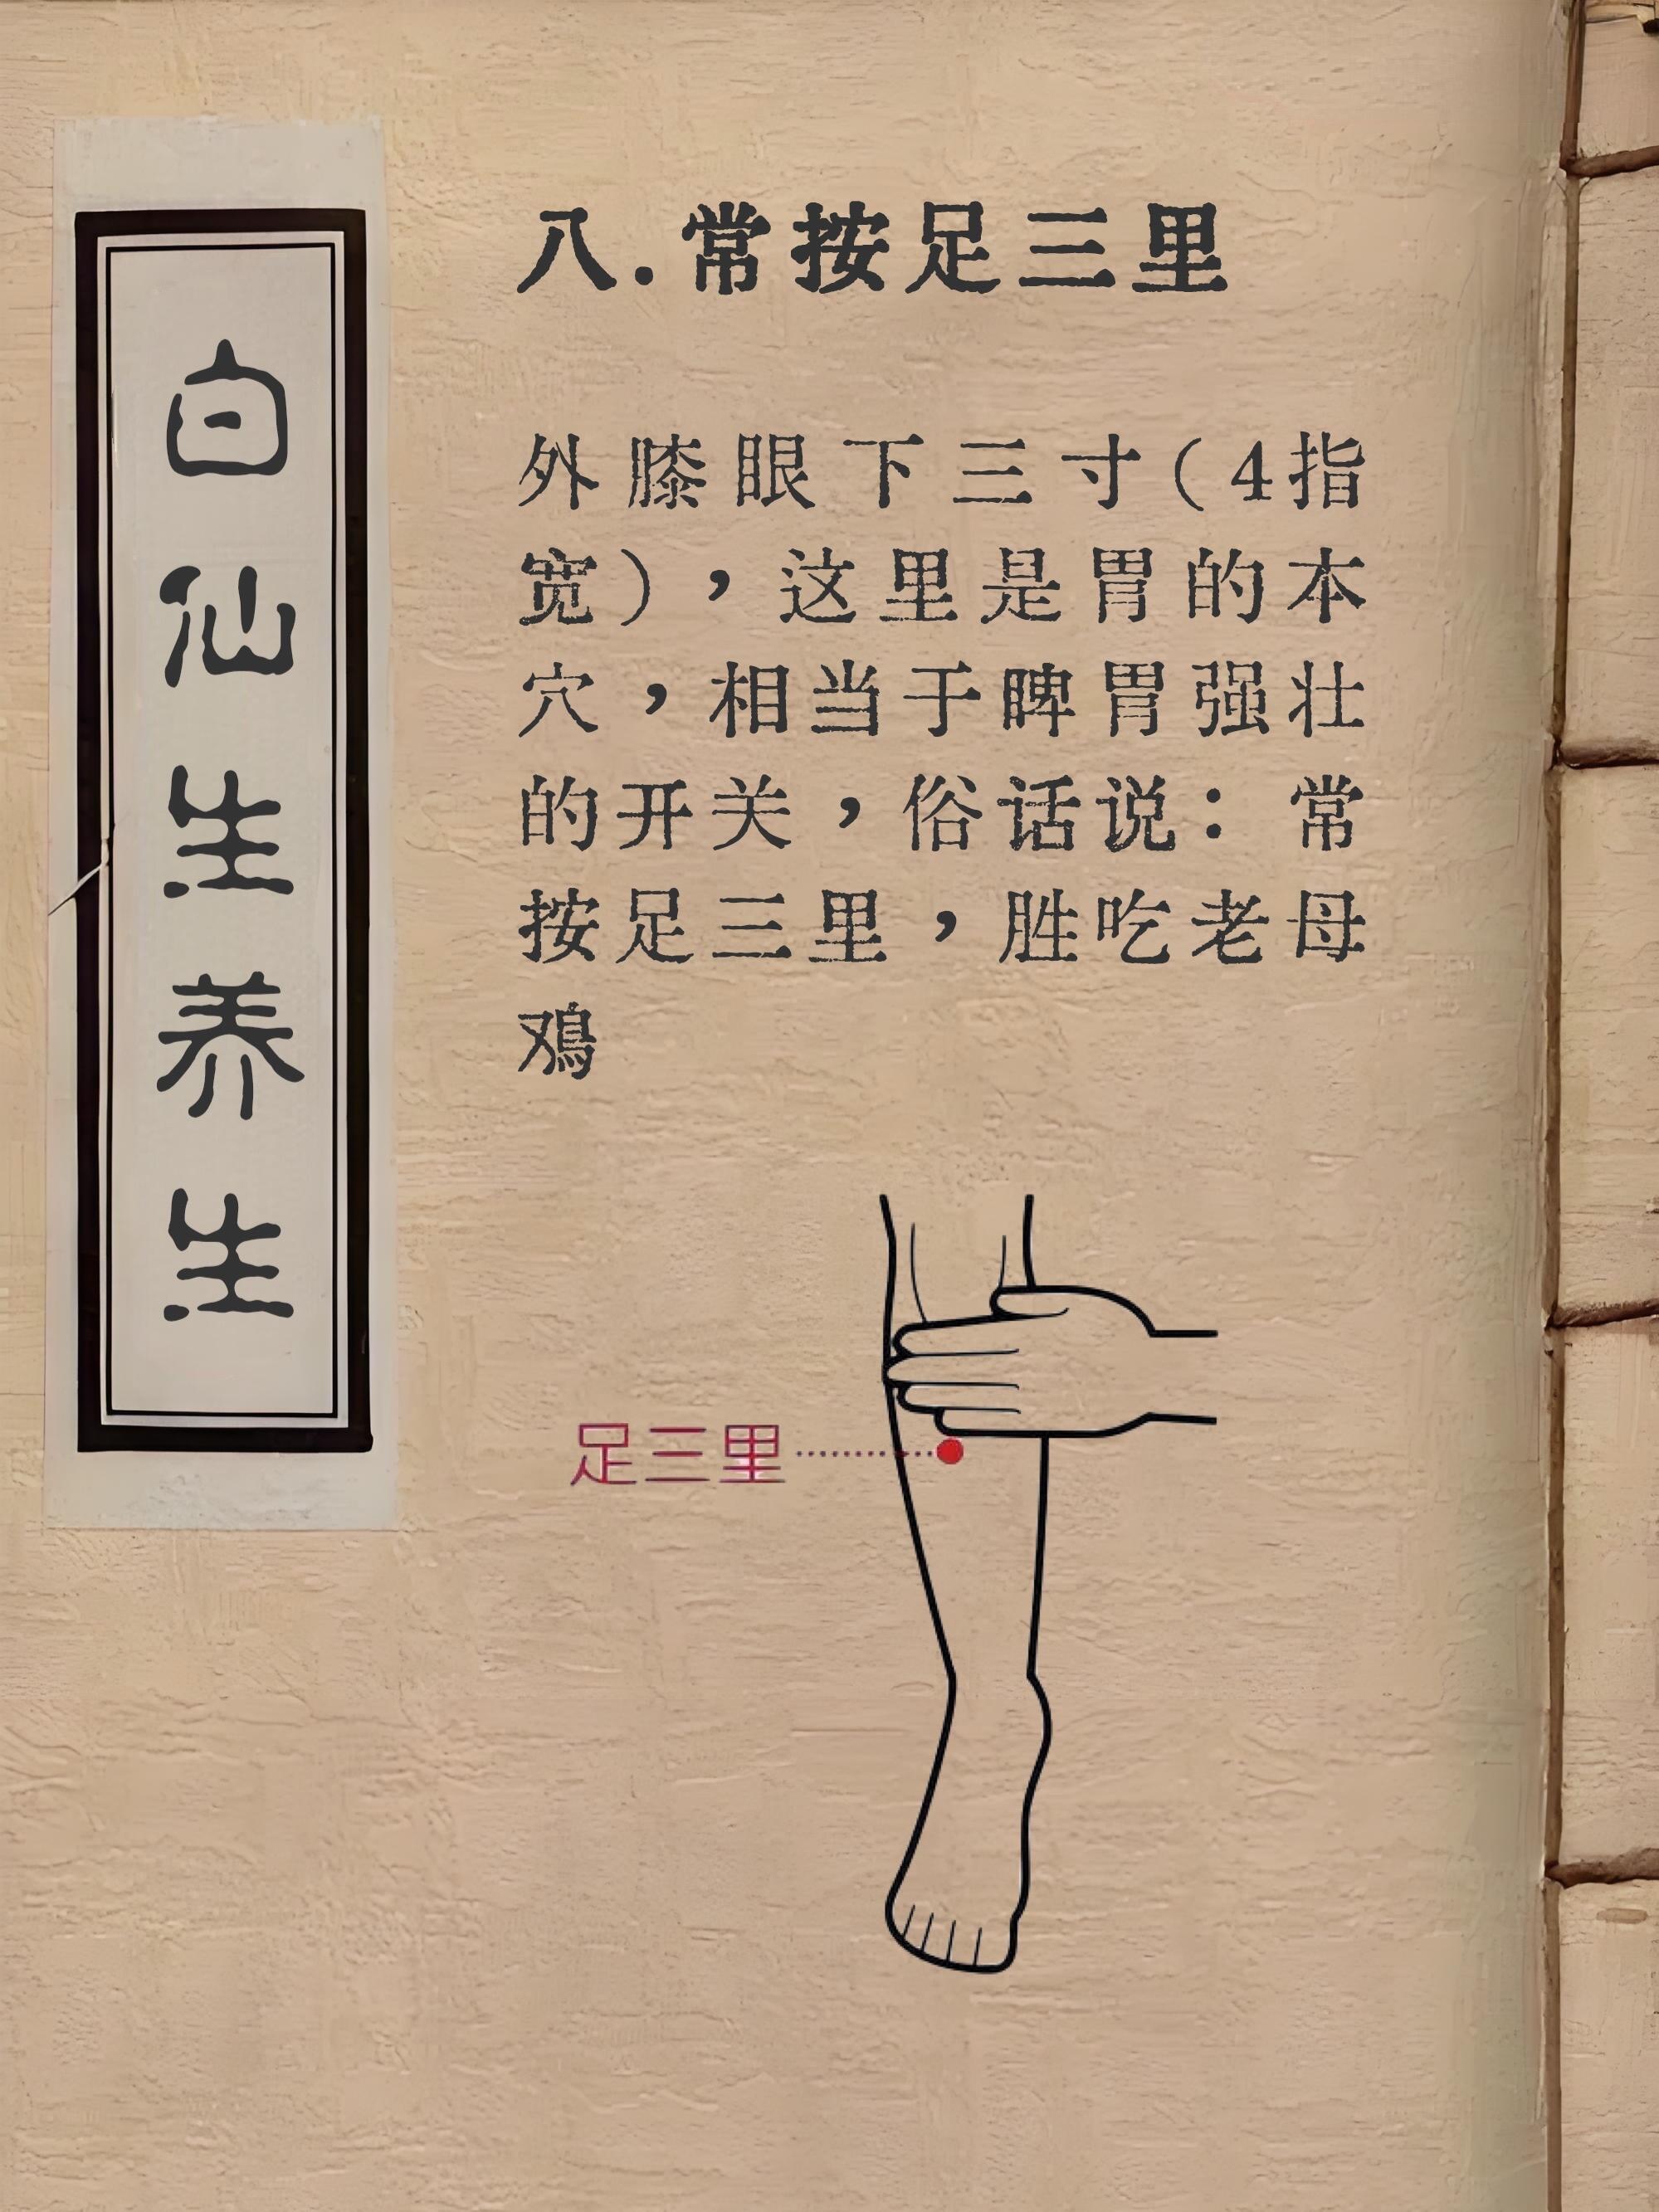 白仙生养生
八.常按足三里
外膝眼下三寸(4指
宽),这里是胃的本
穴,相当于脾胃强壮
的开关,俗话说:常
按足三里,胜吃老母
鸡
足三里